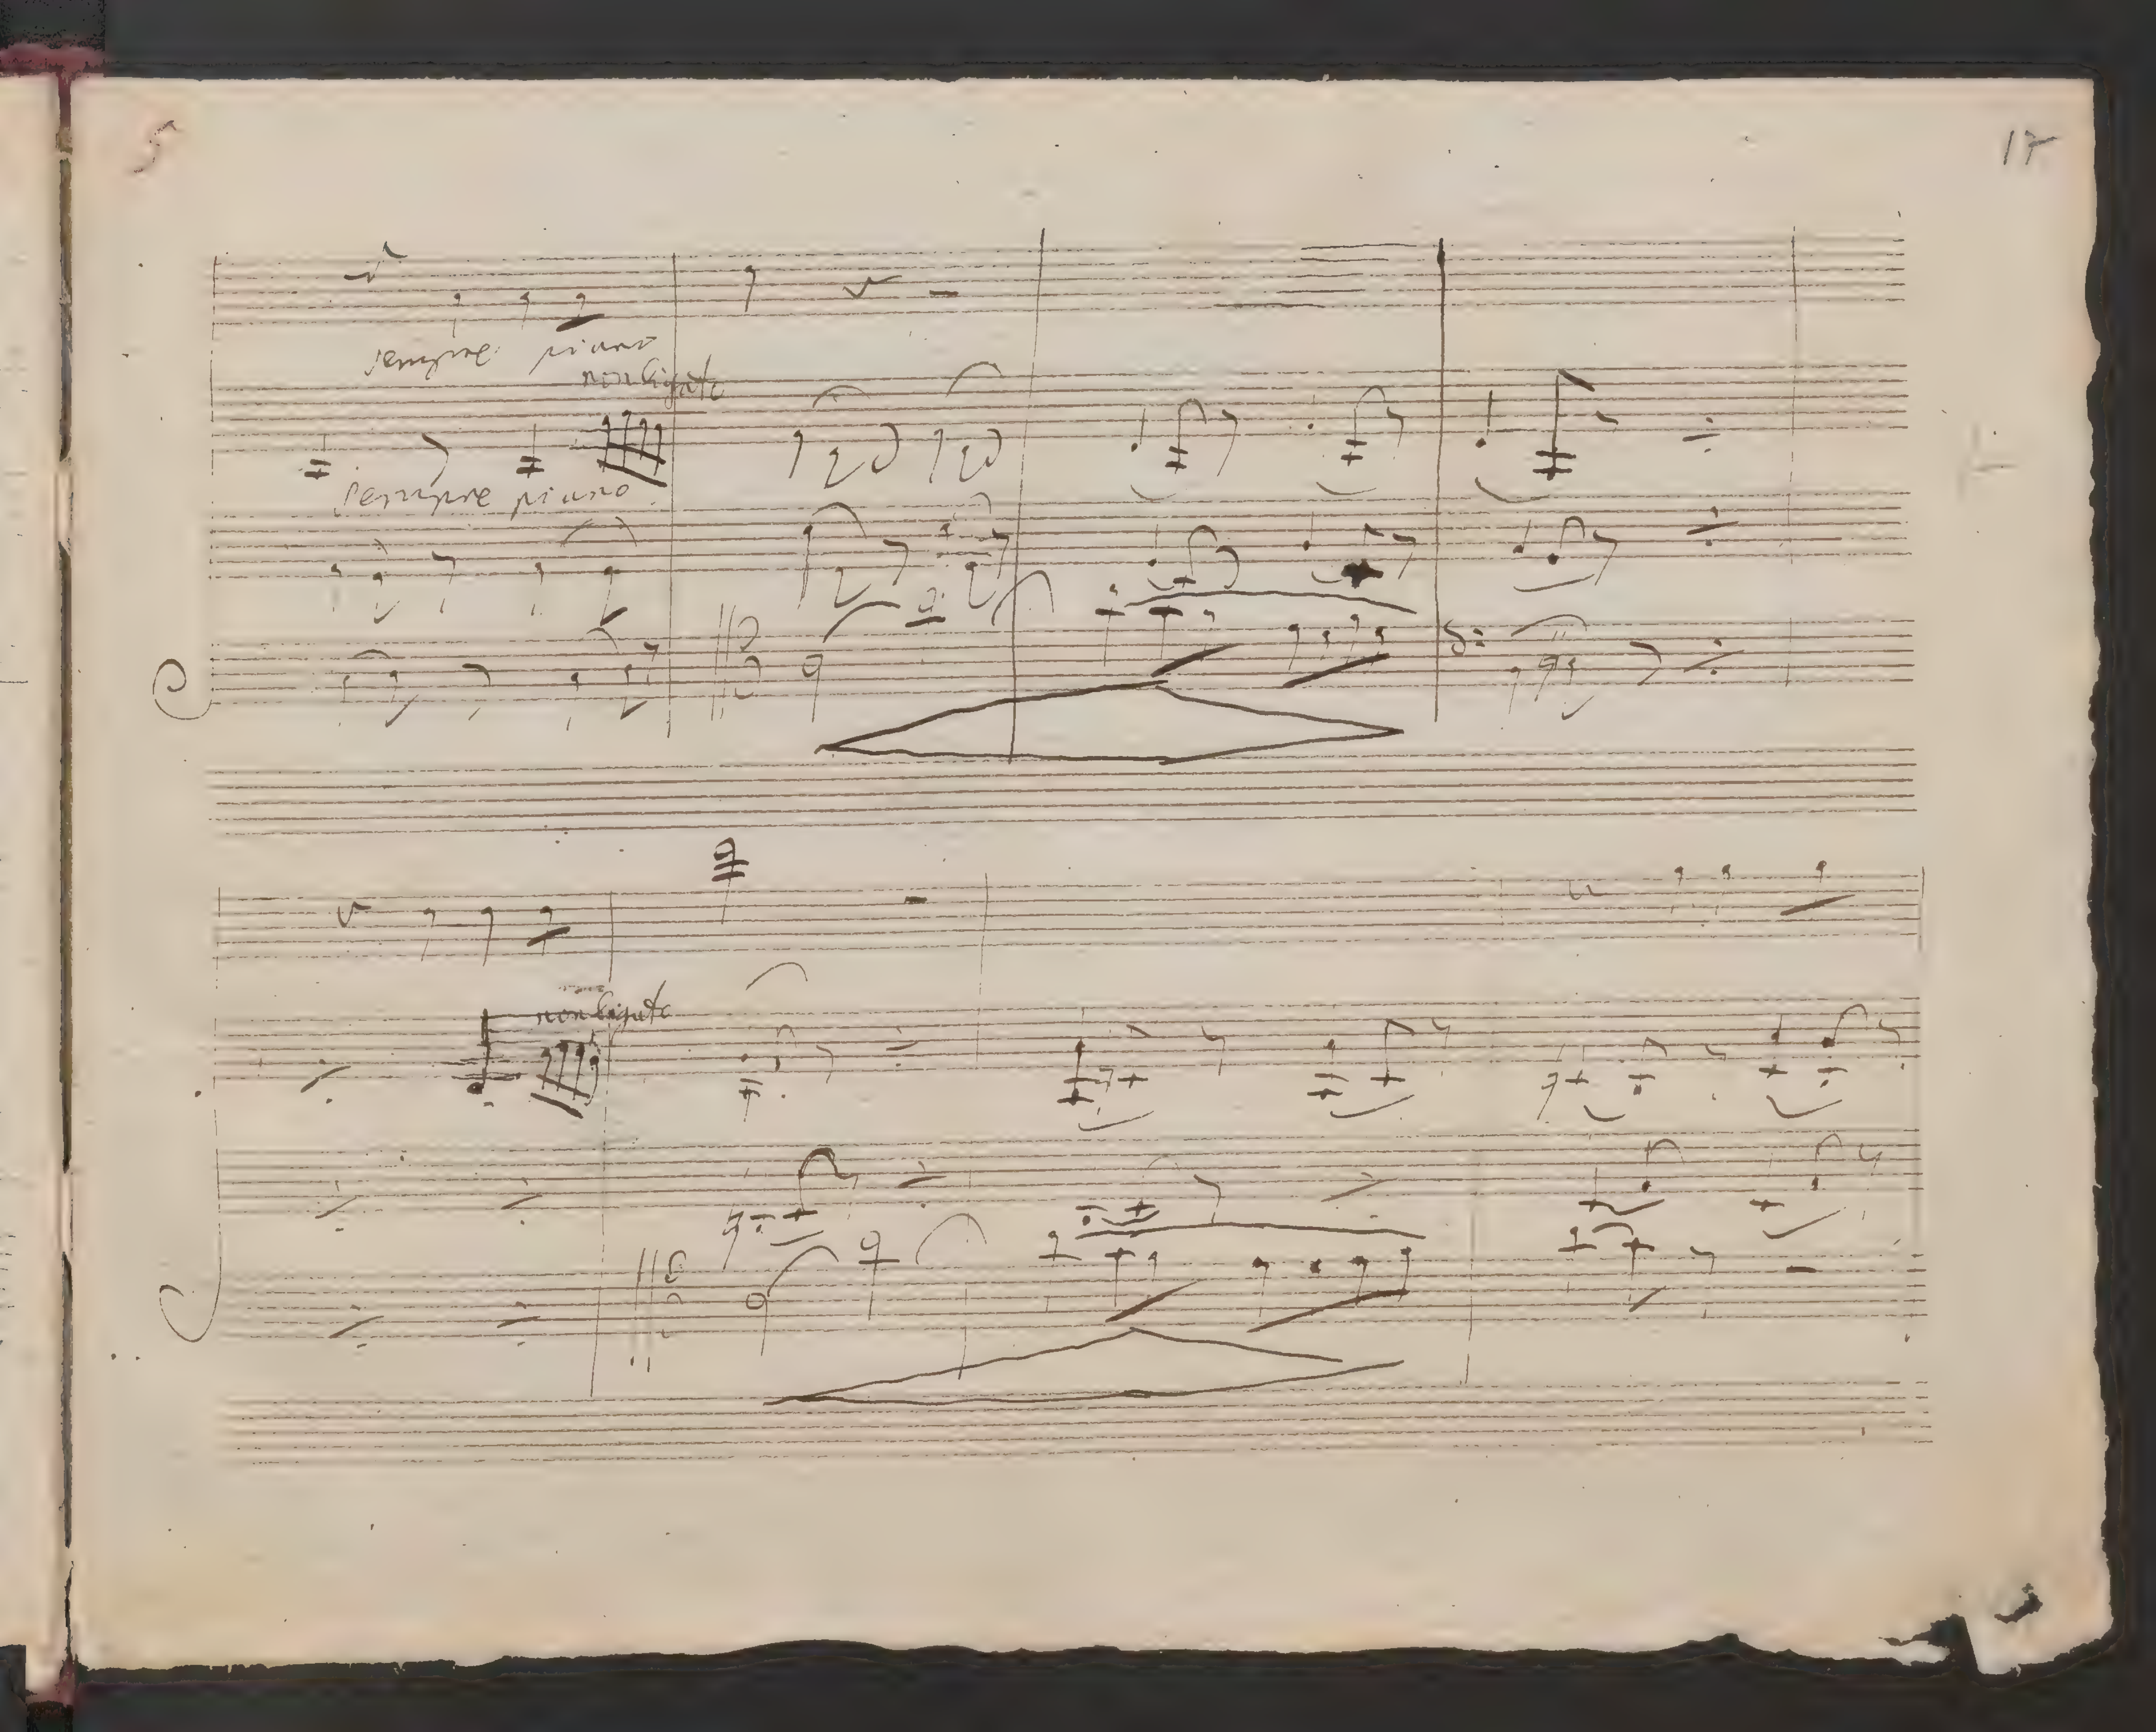 5
17
sempre piano
non ligato
sempre piano
non ligato